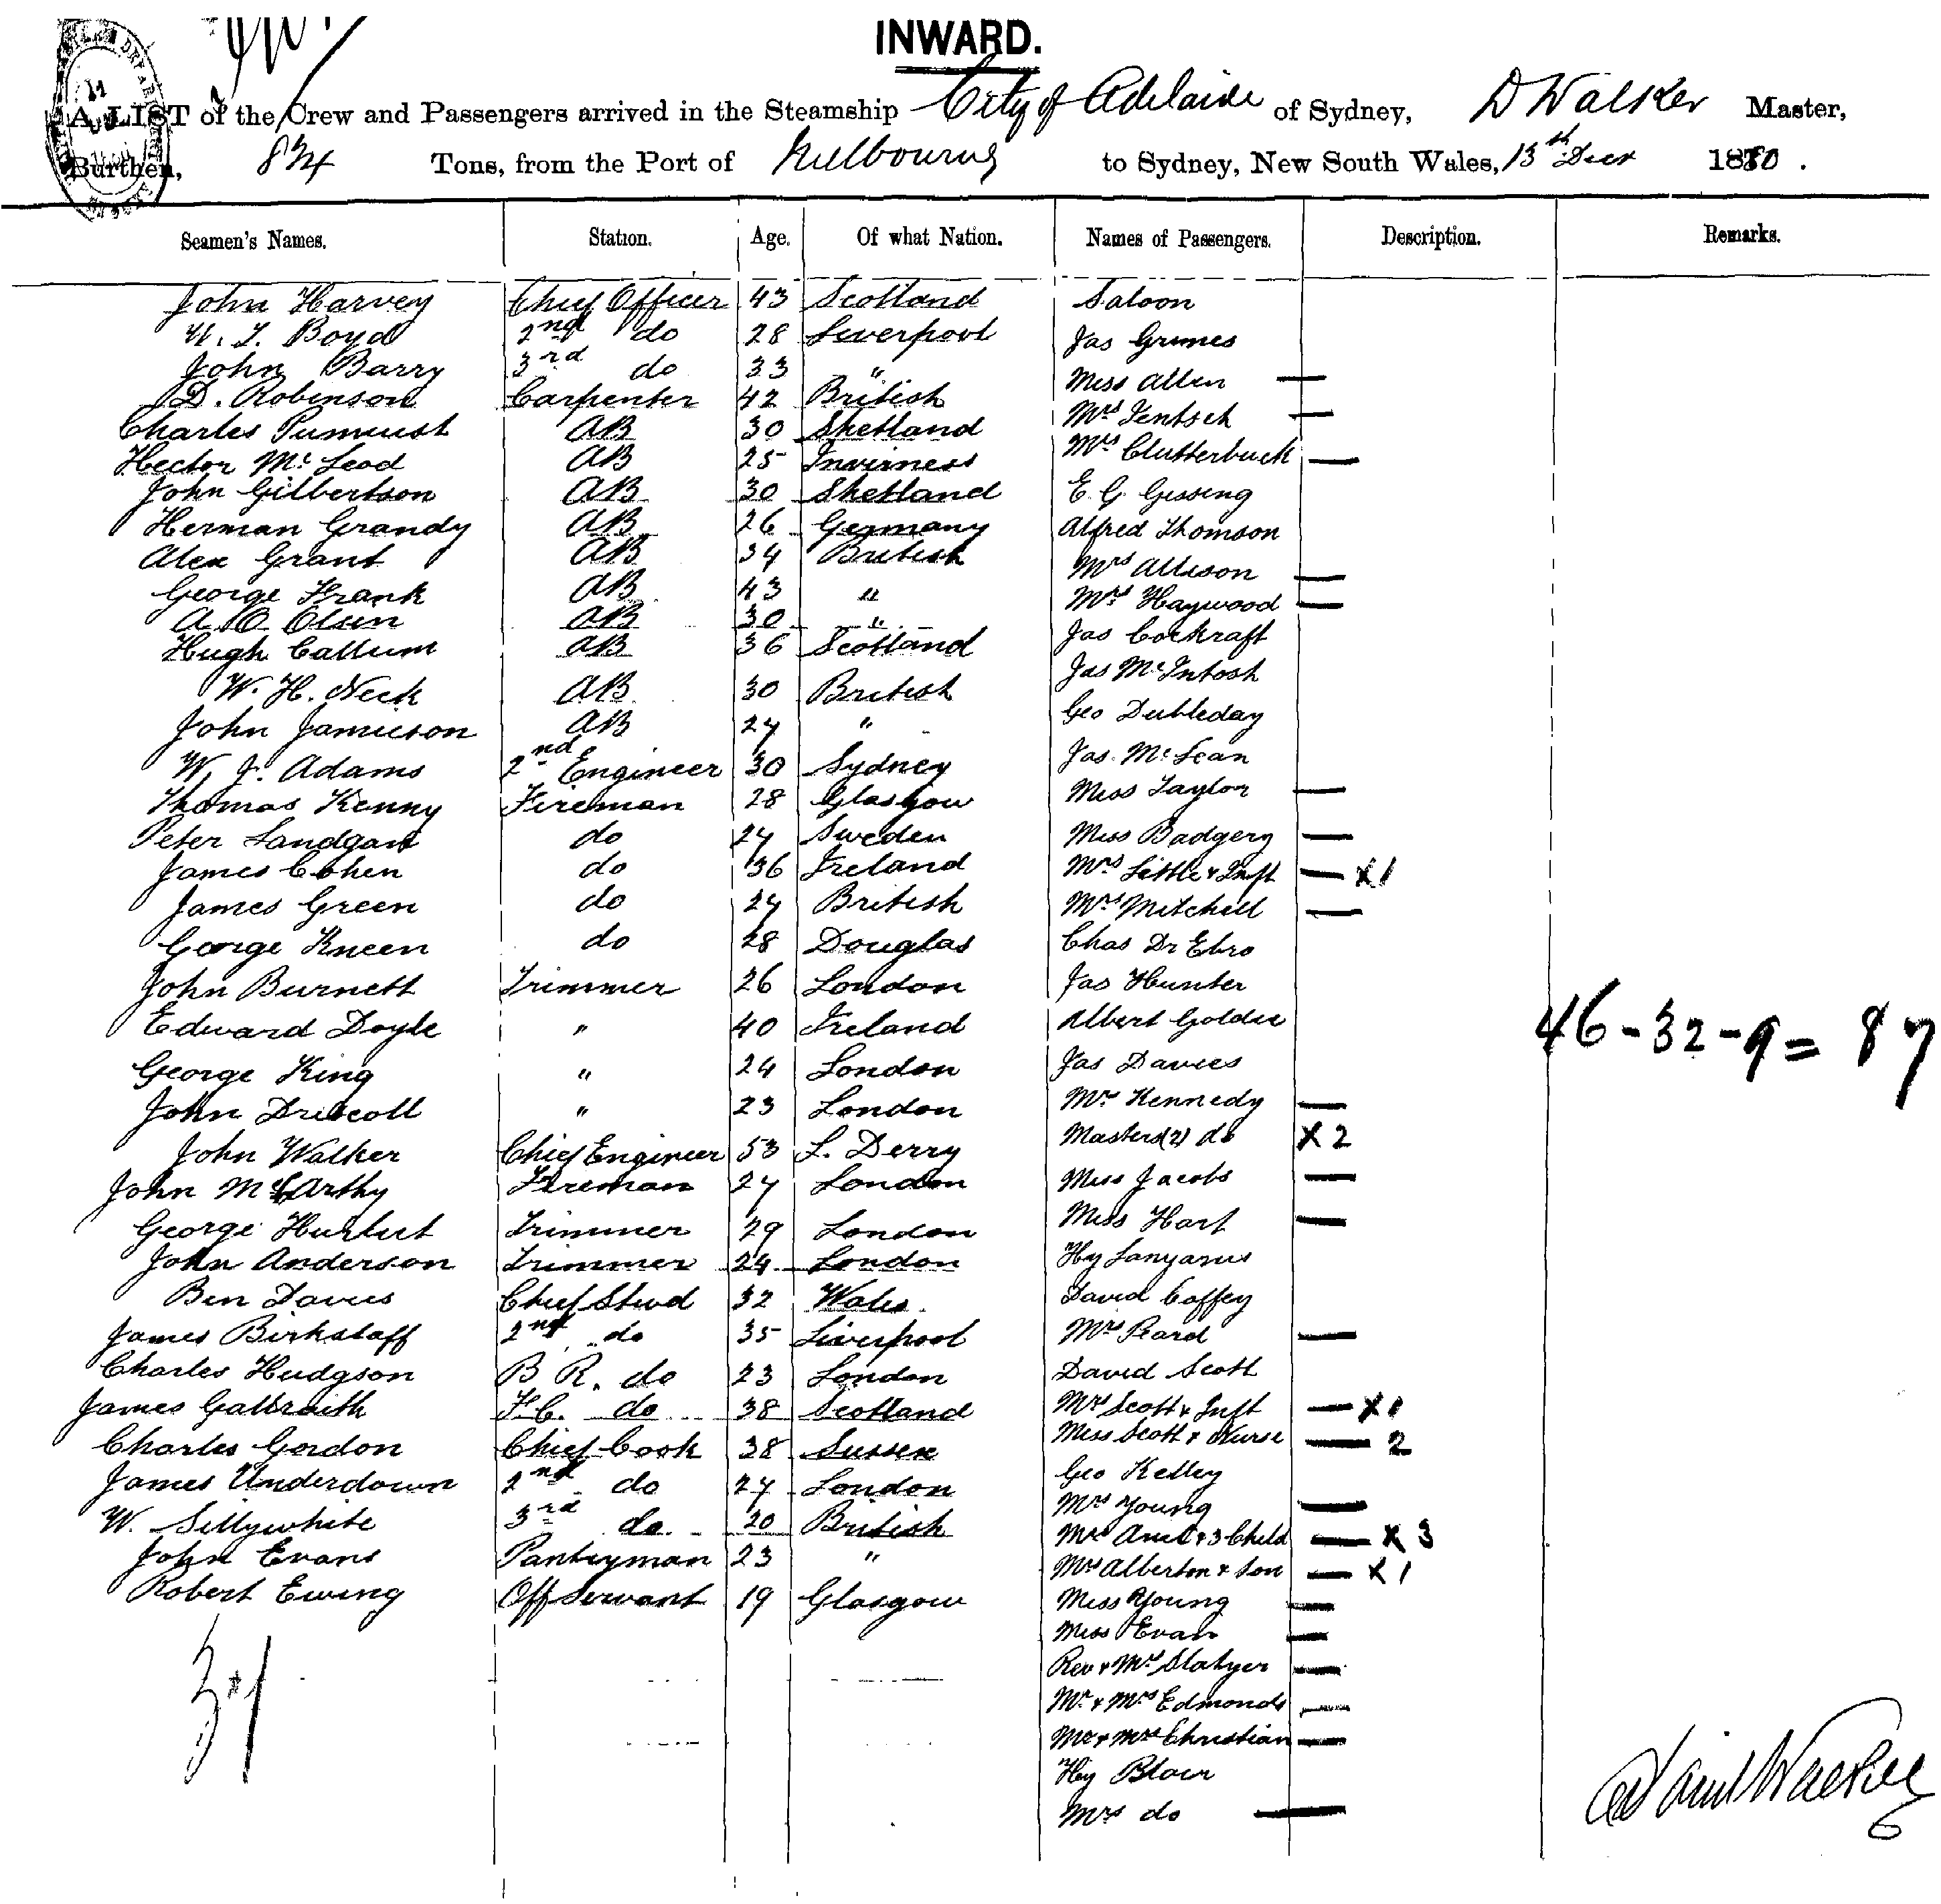 INWARD.
A LIST of the Crew and Passengers arrived in the Steamship City of Adelaide of Sydney, D Walker Master,
Burthen, 824 Tons, from the Port of Melbourne to Sydney, New South Wales, 13th Decr 1880.
Seamen's Names. Station. Age. Of what Nation. Names of Passengers. Description. Remarks.
John Harvey Chief Officer 43 Scotland Saloon
W. T. Boyd 2nd do 28 Liverpool Jas Grimes
John Barry 3rd do 33 " Miss Allen —
D. Robinson Carpenter 42 British Mrs Jentsch —
Charles AB 30 Shetland Mrs Clutterbuck —
Hector McLeod AB 25 Inverness
John Gilbertson AB 30 Shetland E. G. Gissing
Herman Grandy AB 26 Germany Alfred Thomson
Alex Grant AB 34 British Mrs Allison —
George Frank AB 43 " Mrs Haywood —
A. O. Olsen AB 30 " Jas Cockraft
Hugh Callum AB 36 Scotland Jas McIntosh
W. H. Neck AB 30 British Geo Dubleday
John Jamieson AB 24 " Jas. McLean
W. J. Adams 2nd Engineer 30 Sydney Miss Taylor —
Thomas Kenny Fireman 28 Glasgow
Peter Landgard do 24 Sweden Miss Badgery —
James Cohen do 36 Ireland Mrs Little & Inft — X1
James Green do 24 British Mrs Mitchell —
George Kneen do 28 Douglas Chas Dr Ebro
John Burnett Trimmer 26 London Jas Hunter
Edward Doyle " 40 Ireland Albert Goldie 46-32-9 = 87
George King " 24 London Jas Davies
John Driscoll " 23 London Mrs Kennedy —
John Walker Chief Engineer 53 L. Derry Masters (2) do X 2
John McCarthy Fireman 24 London Miss Jacobs —
George Hurlust Trimmer 29 London Miss Hart —
John Anderson Trimmer 24 London Hy
Ben Davies Chief Stwd 32 Wales David Coffey
James Birkstaff 2nd do 35 Liverpool Mrs Peard —
Charles Hudgson B R. do 23 London David Scott
James Galbraith F.C. do 38 Scotland Mrs Scott & Inft — X1
Charles Gordon Chief Cook 38 Sussex Miss Scott & Nurse — 2
James Underdown 2nd do 24 London Geo Kelley
W. Sillywhite 3rd do 20 British Mrs Young —
John Evans Pantryman 23 " Mrs & 3 Child — X 3
Robert Ewing Off Servant 19 Glasgow Mrs Alberton & Son — X 1
Miss Young —
Miss Evan —
Rev & Mrs Slatyer —
Mr & Mrs Edmonds —
Mr & Mrs Christian —
Hy Blair
Mrs do —